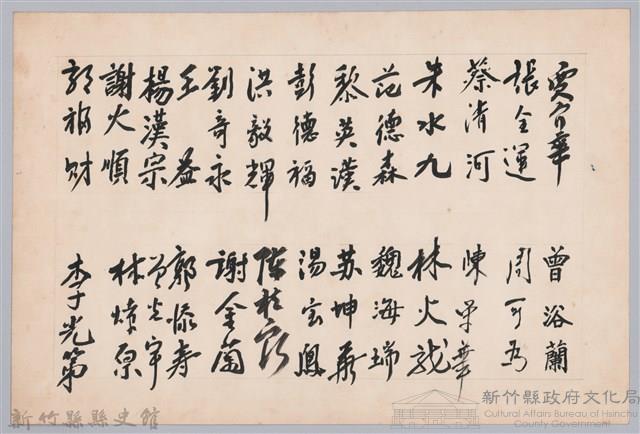 賈宜華
張全運
蔡清河
朱水九
范德森
黎英漢
彭德福
洪毅輝
劉奇永
王益
楊漢宗
謝火順
郭福財
曾浴蘭
周可為
陳 華
林火龍
魏海瑞
蘇坤
湯宏鳳
陳
謝金
郭添壽
曾光
林
李光第
新竹縣縣史館
新竹縣政府文化局
Cultural Affairs Bureau of Hsinchu
County Government